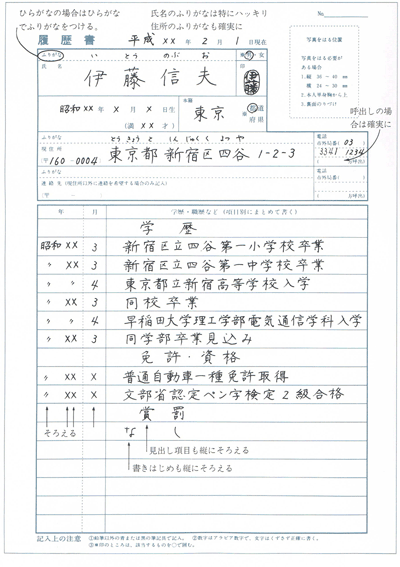 ひらがなの場合はひらがな
でふりがなをつける。
氏名のふりがなは特にハッキリ
住所のふりがなも確実に
No.
履歴書 平成 XX 年 2 月 1 日現在
写真をはる位置
ふりがな い とう のぶ お
男・女
氏名 伊藤信夫 印 伊藤
昭和 XX 年 X 月 X 日生
(満 XX 才)
本籍 東京 都道府県
呼出しの場
合は確実に
ふりがな とうきょう と しんじゅく く よつ や
現住所
〒160-0004 東京都新宿区四谷 1-2-3
電話
市外局番 ( 03 )
3341 1234
( 方呼出)
ふりがな
連絡先 (現住所以外に連絡を希望する場合のみ記入)
〒
電話
市外局番 ( )
( 方呼出)
年 月 学歴・職歴など (項目別にまとめて書く)
学歴
昭和 XX 3 新宿区立四谷第一小学校卒業
〃 XX 3 新宿区立四谷第一中学校卒業
〃 〃 4 東京都立新宿高等学校入学
〃 XX 3 同校卒業
〃 〃 4 早稲田大学理工学部電気通信学科入学
〃 XX 3 同学部卒業見込み
免許・資格
〃 XX X 普通自動車一種免許取得
〃 XX X 文部省認定ペン字検定2級合格
賞罰
なし
そろえる
見出し項目も縦にそろえる
書きはじめも縦にそろえる
記入上の注意 ①鉛筆以外の青または黒の筆記具で記入。 ②数字はアラビア数字で、文字はくずさず正確に書く。
③※印のところは、該当するものを○で囲む。